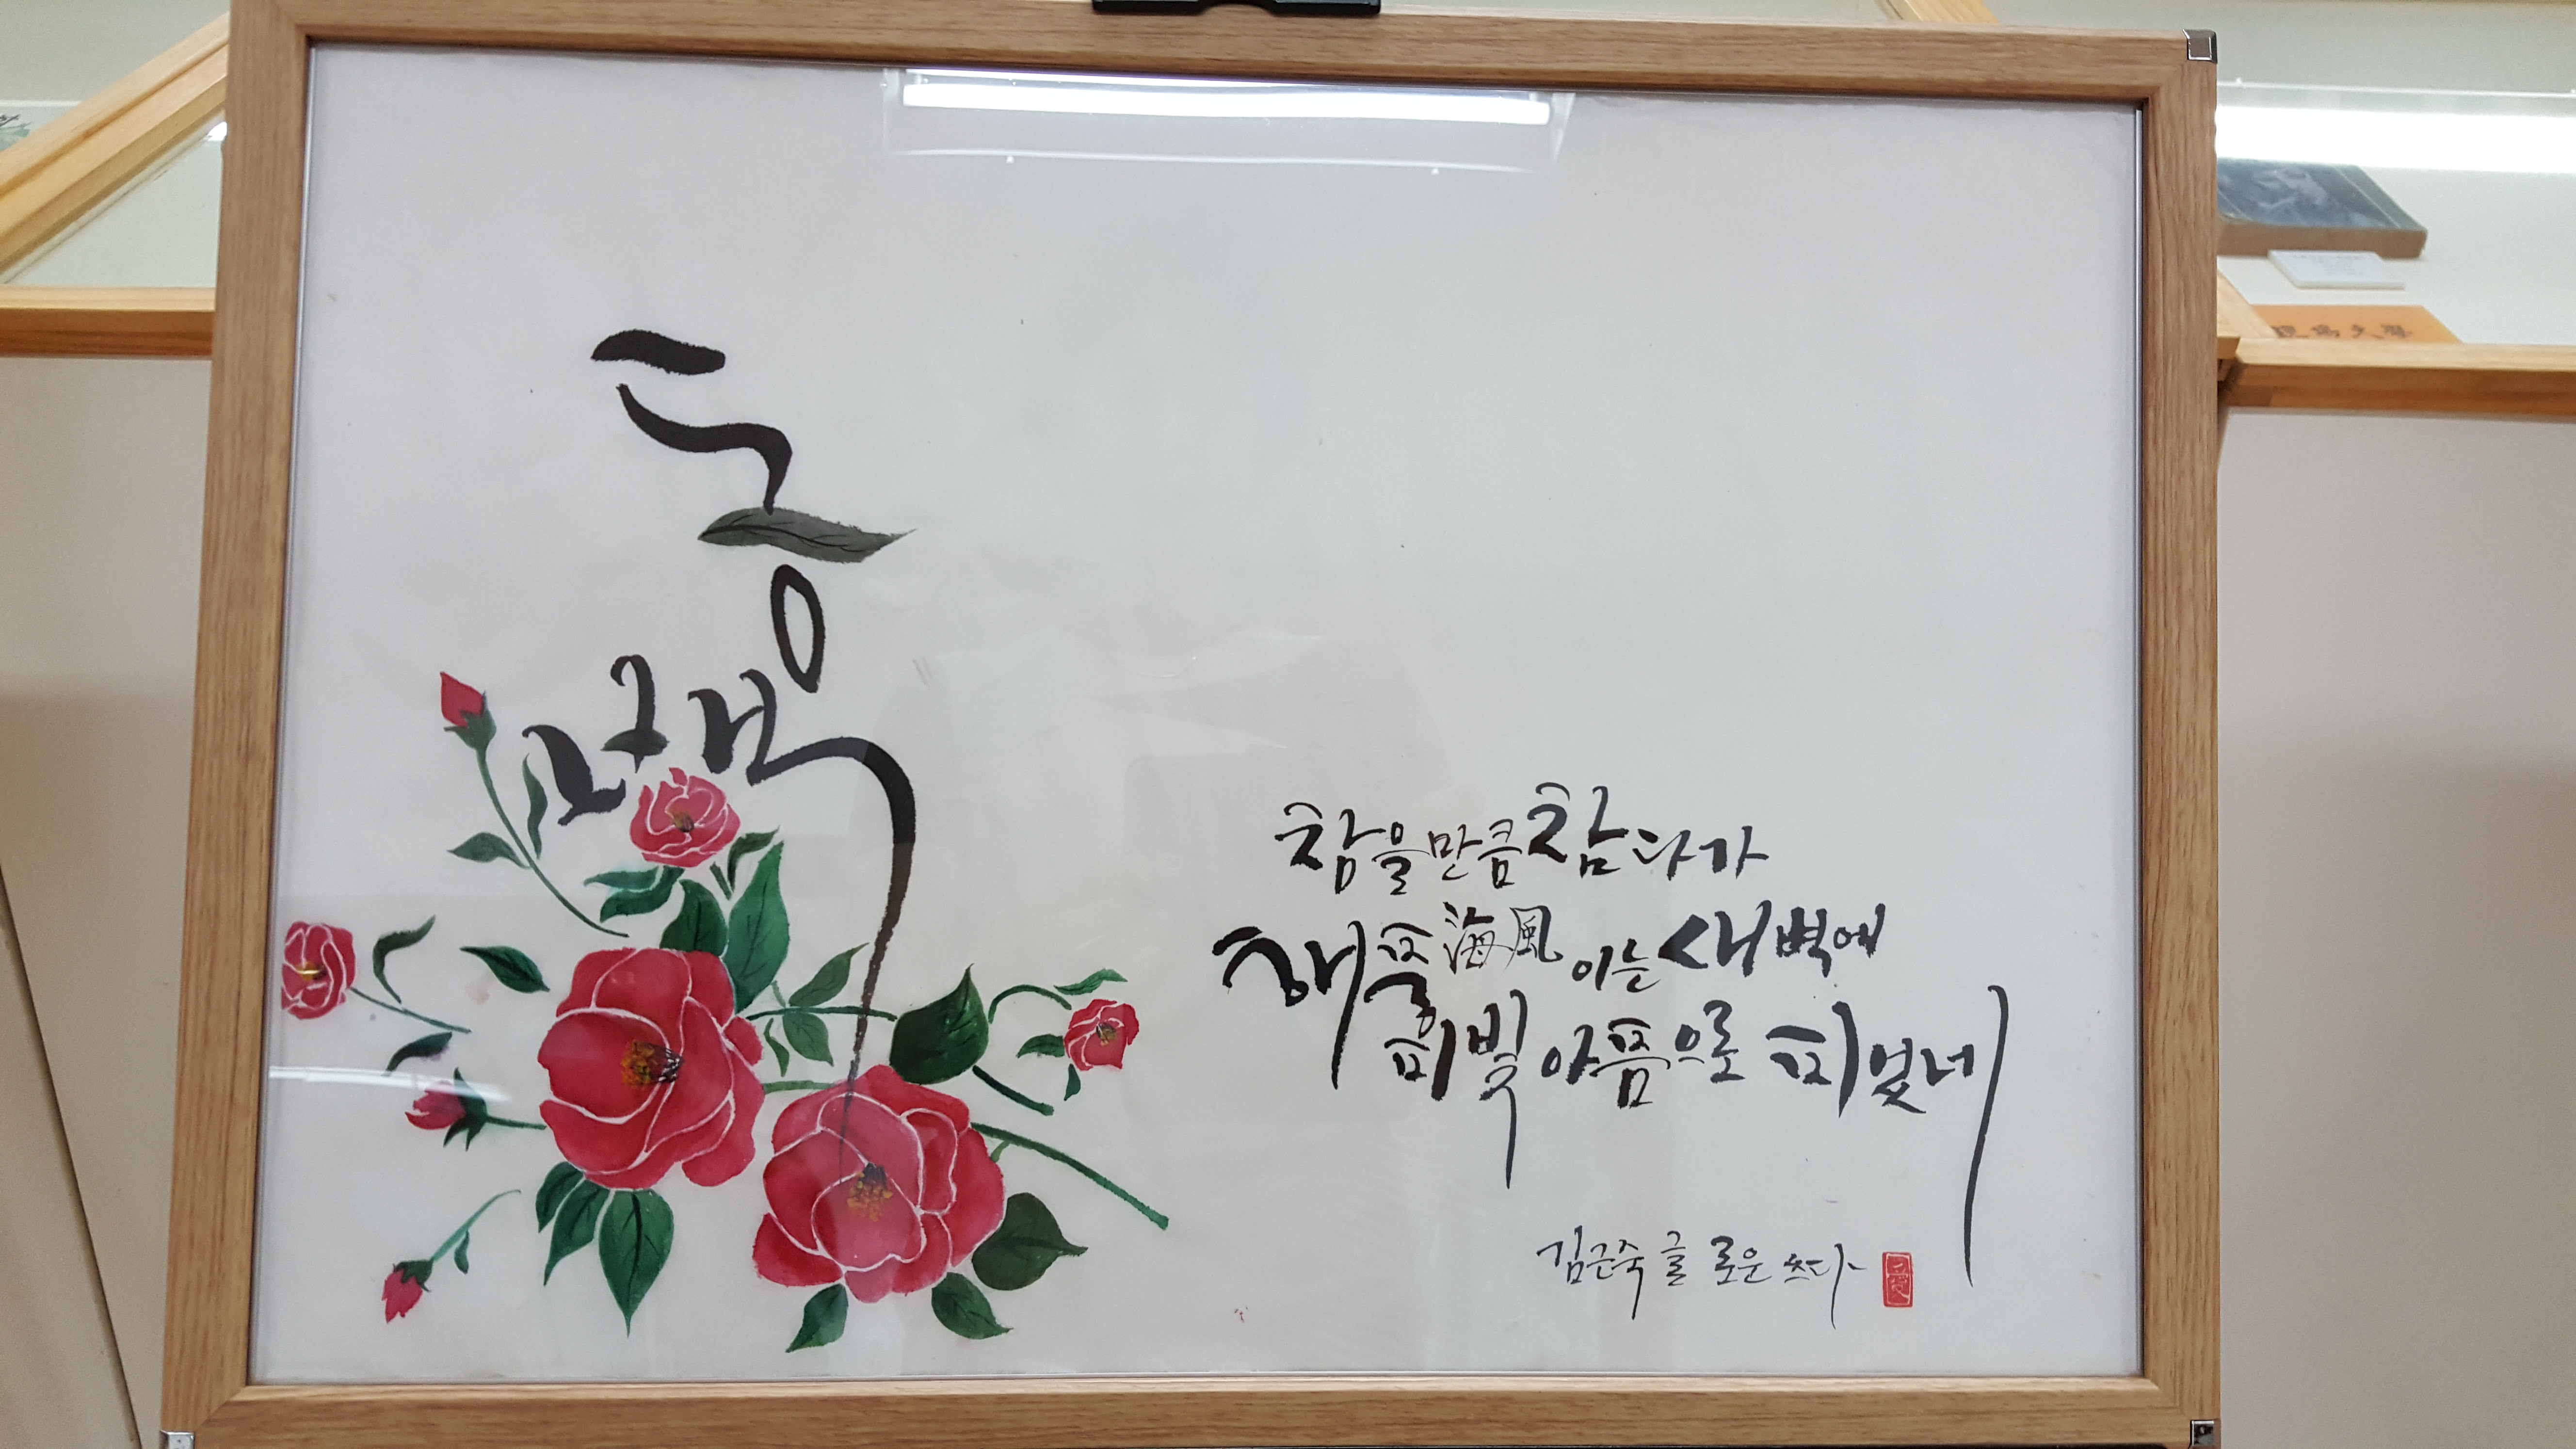 동백
참을만큼 참다가
해풍海風 이는 새벽에
핏빛 아픔으로 피었네
김근숙 글 로운 쓰다